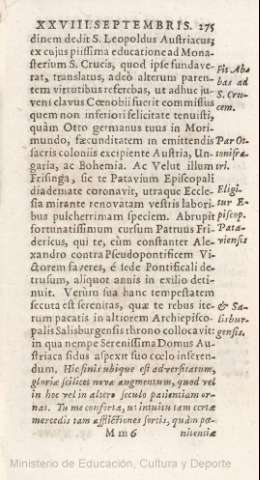 XXVIII. SEPTEMBRIS. 275
dinem dedit S. Leopoldus Austriacus;
ex cujus piissima educatione ad Mona-
sterium S. Crucis, quod ipse fundave-
rat, translatus, adeò alterum paren-
tem virtutibus referebas, ut adhuc ju-
veni clavus Cœnobii fuerit commissus
quem non inferiori felicitate tenuisti,
quàm Otto germanus tuus in Mori-
mundo, fæcunditatem in emittendis
sacris coloniis excipiente Austria, Un-
garia, ac Bohemia. Ac Velut illum
Frisinga, sic te Patavium Episcopali
diademate coronavit, utraque Eccle-
sia mirante renovatam vestris labori-
bus pulcherrimam speciem. Abrupit
fortunatissimum cursum Patruus Fri-
dericus, qui te, cùm constanter Ale-
xandro contra Pseudopontificem Vi-
ctorem faveres, è sede Pontificali de-
trusum, aliquot annis in exilio deti-
nuit. Verùm sua hanc tempestatem
secuta est serenitas, quæ te rebus ite-
rum pacatis in altiorem Archiepisco-
palis Salisburgensis throno collocavit:
in qua nempe Serenissima Domus Au-
striaca sidus aspexit suo cœlo inseren-
dum. Hic finis ubique est adversitatum,
gloriæ scilicet nova augmentum, quod vel
in hoc vel in altero seculo patientiam or-
nat. Tu me conforta, ut intuitu tam certæ
mercedis tam afflictiones fortis, quàm pœ-
M m 6 nitentiæ
Fit Abba
bas ad
S. Cru-
cem.
Par Ot-
toni fra-
tri.
Eligi-
tur E-
piscop.
Pata-
viensis
& Sa-
lisbur-
gensis.
Ministerio de Educación, Cultura y Deporte